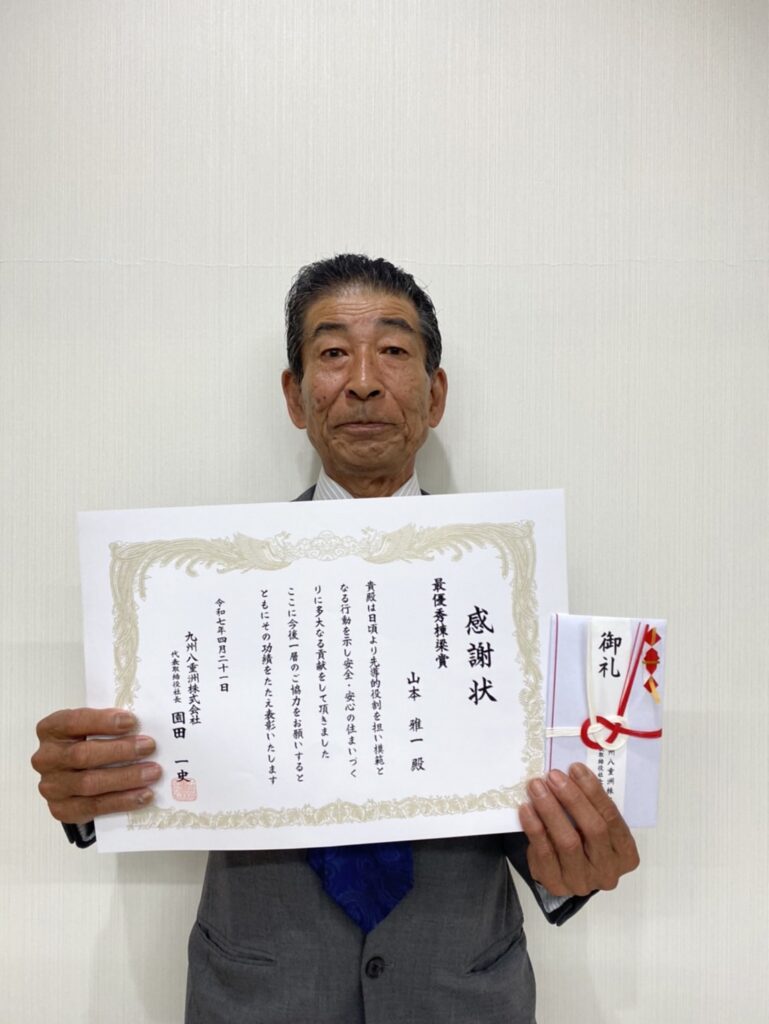 感謝状
最優秀棟梁賞
山本 雅一 殿
貴殿は日頃より先導的役割を担い模範と
なる行動を示し安全・安心の住まいづく
りに多大なる貢献をして頂きました
ここに今後一層のご協力をお願いすると
ともにその功績をたたえ表彰いたします
令和七年四月二十一日
九州八重洲株式会社
代表取締役社長 園田 一史
御礼
州八重洲株
取締役社